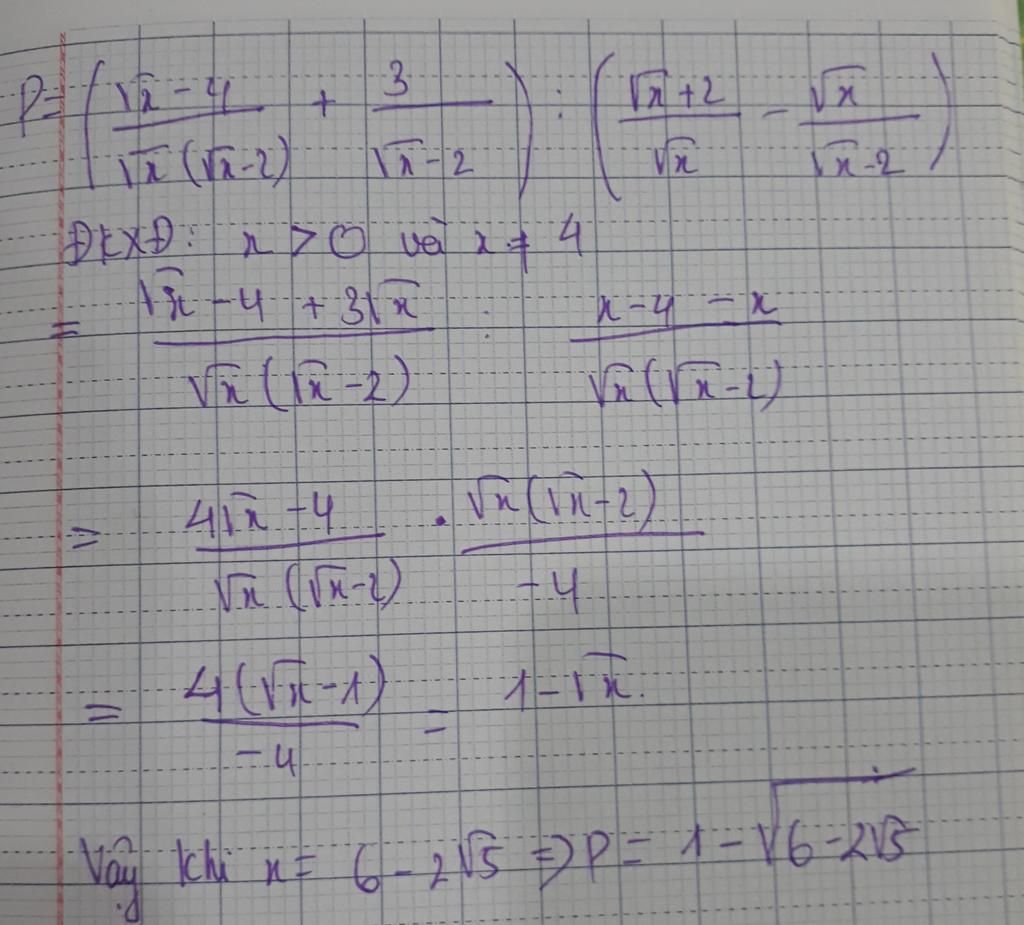 P = ( (√x - 4) / (√x (√x - 2)) + 3 / (√x - 2) ) : ( (√x + 2) / √x - √x / (√x - 2) )
ĐKXĐ: x > 0 và x ≠ 4
= (√x - 4 + 3√x) / (√x (√x - 2)) : (x - 4 - x) / (√x (√x - 2))
= (4√x - 4) / (√x (√x - 2)) . (√x (√x - 2)) / (-4)
= 4(√x - 1) / (-4) = 1 - √x.
Vậy khi x = 6 - 2√5 => P = 1 - √(6 - 2√5)